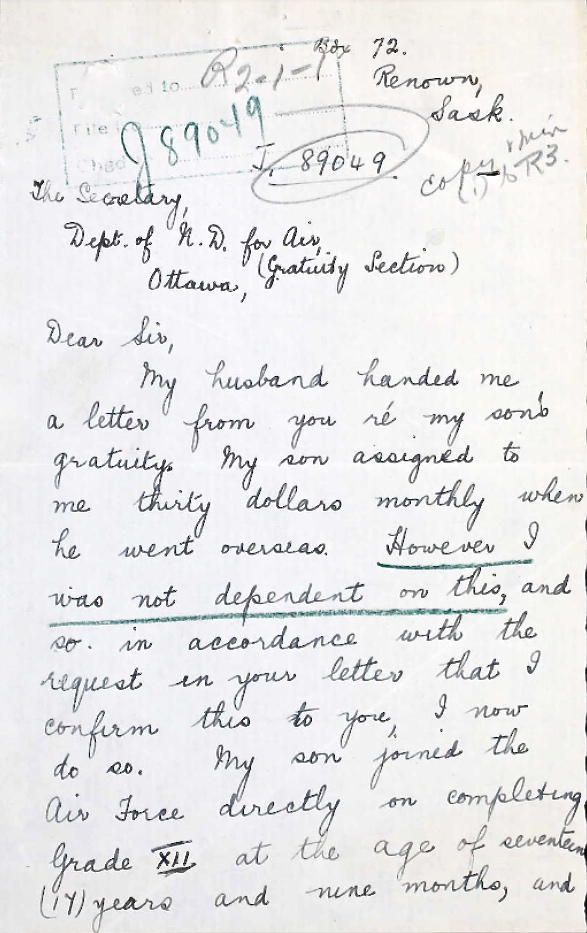 Box 72.
Renown,
Sask.
R2-1-1
ed to
File
J 89049
J. 89049.
copy
R3.
The Secretary,
Dept. of N.D. for Air,
(Gratuity Section)
Ottawa,
Dear Sir,
My husband handed me
a letter from you ré my son's
gratuity. My son assigned to
me thirty dollars monthly when
he went overseas. However I
was not dependent on this, and
so. in accordance with the
request in your letter that I
confirm this to you, I now
do so. My son joined the
Air Force directly on completing
Grade XII at the age of seventeen
(17) years and nine months, and